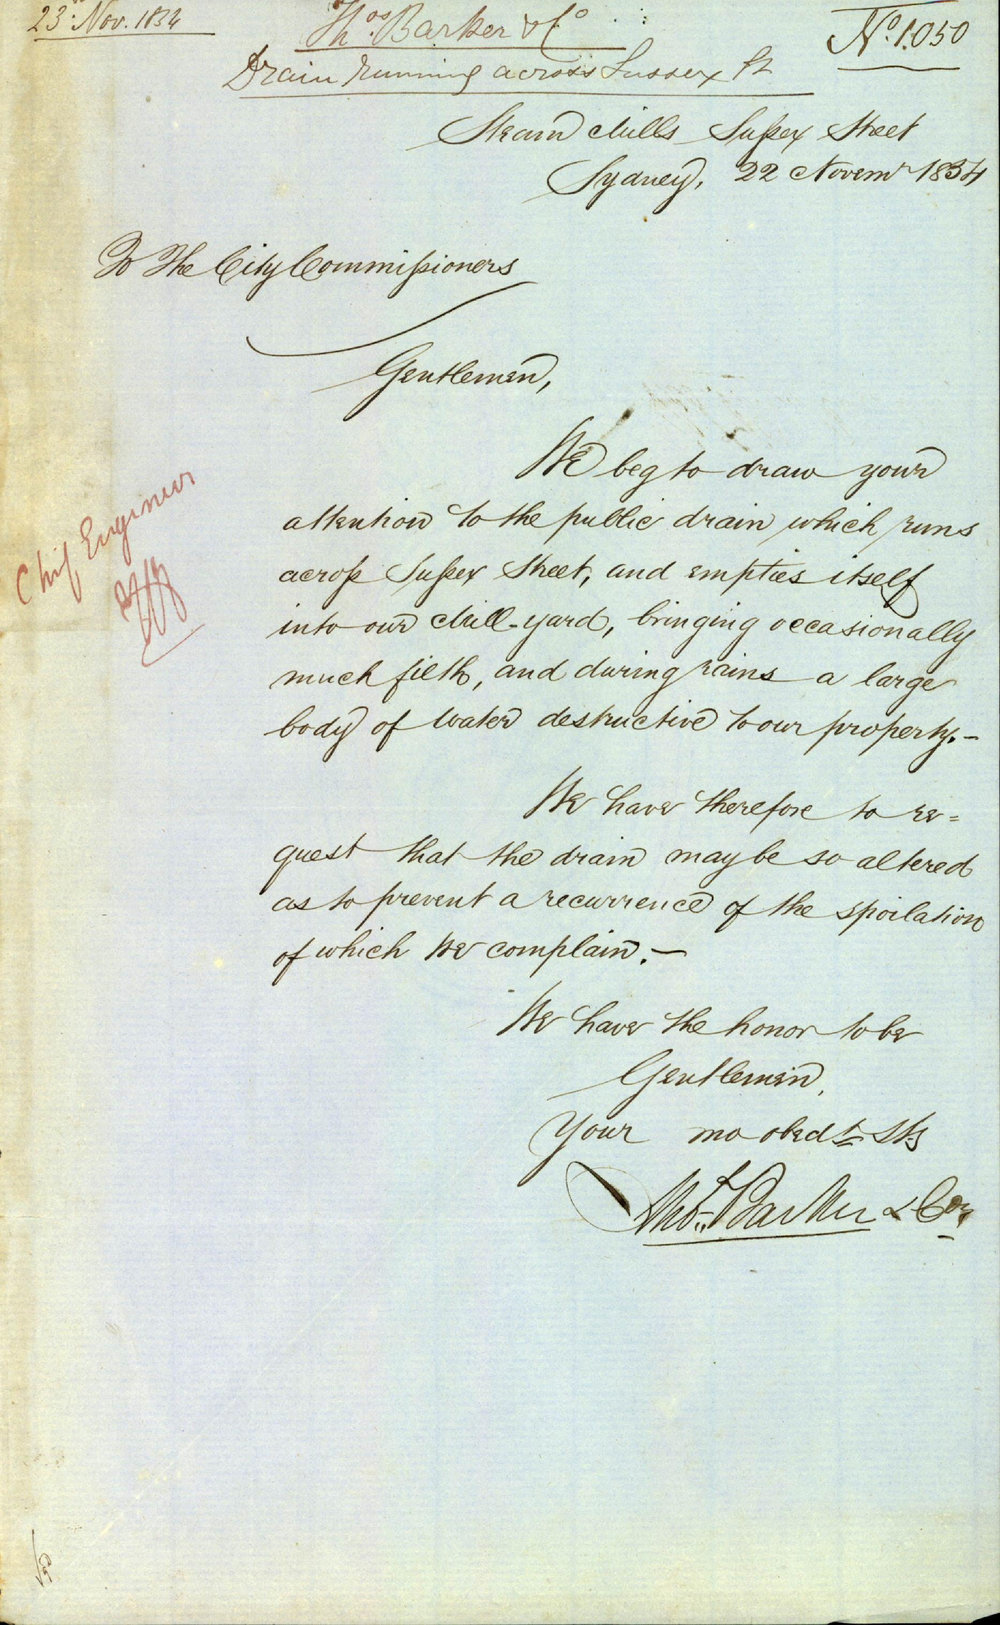 23rd Nov. 1854
Thos. Barker & Co
No 1.050
Drain running across Sussex St
Steam Mills Sussex Street
Sydney, 22 Novemr 1854
To The City Commissioners
Gentlemen,
We beg to draw your
attention to the public drain which runs
across Sussex Street, and empties itself
into our Mill-yard, bringing occasionally
much filth, and during rains a large
body of water destructive to our property.—
We have therefore to re=
quest that the drain may be so altered
as to prevent a recurrence of the spoilation
of which we complain.—
We have the honor to be
Gentlemen,
Your mo obedt Sts
Thos. Barker & Co.
Chief Engineer